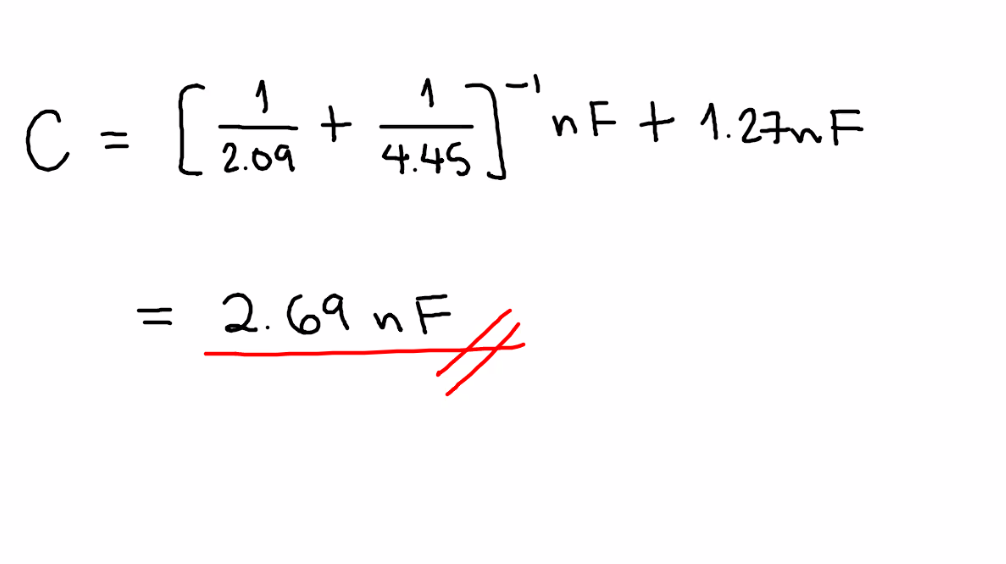 C = [1/2.09 + 1/4.45]⁻¹ nF + 1.27nF
= 2.69 nF